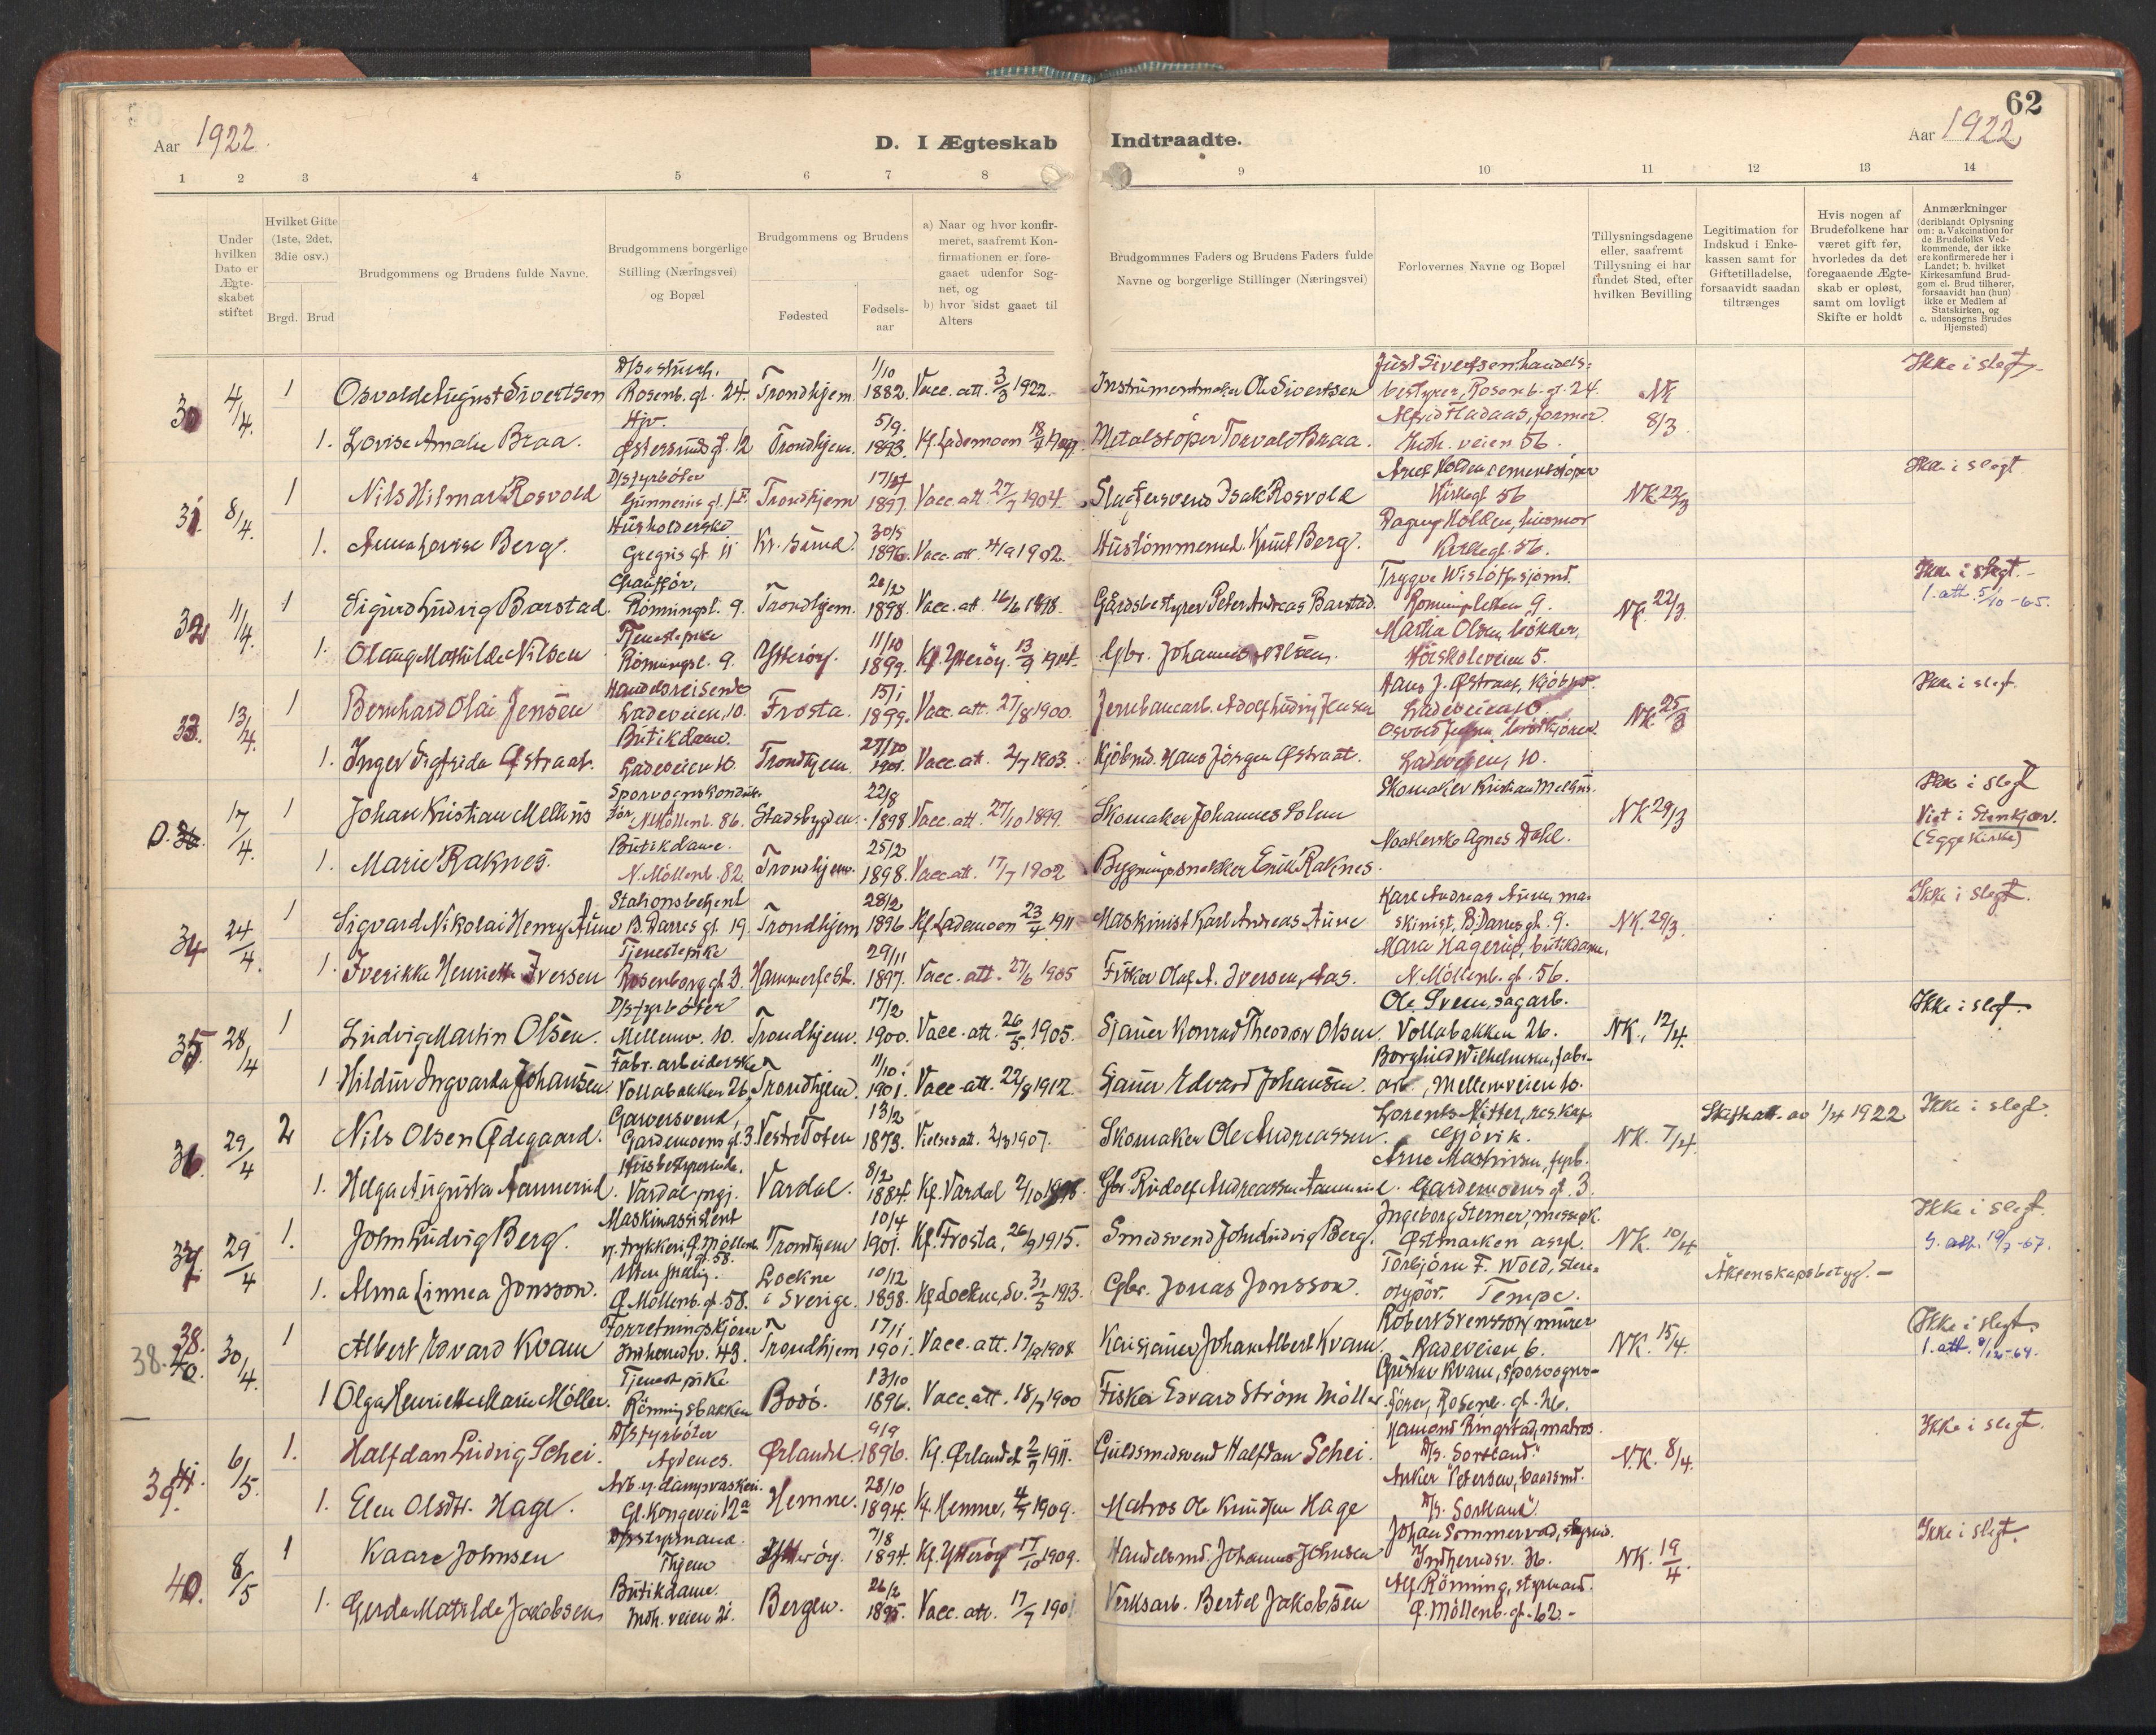 62
Aar 1922.
D. I Ægteskab Indtraadte.
Aar 1922
1 2 3 4 5 6 7 8 9 10 11 12 13 14
Under hvilken Dato er Ægte-skabet stiftet
Hvilket Gifte (1ste, 2det, 3die osv.)
Brgd. Brud
Brudgommens og Brudens fulde Navne.
Brudgommens borgerlige Stilling (Næringsvei) og Bopæl
Brudgommens og Brudens
Fødested
Fødsels-aar
a) Naar og hvor konfir-meret, saafremt Kon-firmationen er fore-gaaet udenfor Sog-net, og
b) hvor sidst gaaet til Alters
Brudgommnes Faders og Brudens Faders fulde Navne og borgerlige Stillinger (Næringsvei)
Forlovernes Navne og Bopæl
Tillysningsdagene eller, saafremt Tillysning ei har fundet Sted, efter hvilken Bevilling
Legitimation for Indskud i Enke-kassen samt for Giftetilladelse, forsaavidt saadan tiltrænges
Hvis nogen af Brudefolkene har været gift før, hvorledes da det foregaaende Ægte-skab er opløst, samt om lovligt Skifte er holdt
Anmærkninger (deriblandt Oplysning om: a. Vakcination for de Brudefolks Ved-kommende, der ikke ere konfirmerede her i Landet; b. hvilket Kirkesamfund Brud-gom el. Brud tilhører, forsaavidt han (hun) ikke er Medlem af Statskirken, og c. udensogns Brudes Hjemsted)
Just Sivertsen handels-
1/10 Ikke i slegt
30 4/4. 1 Osvald August Sivertsen Rosenb. gt. 24. Trondhjem. 1882. Vacc. att. 3/3 1922. Instrumentmaker Ole Sivertsen bestyrer, Rosenb. gt. 24. NK
Hjv. 5/9. Alfred Fladaas, former. 8/3
1. Lovise Amalie Braa. Østersunds gt. 12 Trondhjem. 1893. Kf. Lademoen Metalstøper Torvald Braa. Indh. veien 56.
D/s fyrbøter Arnt Holden cementstøper Ikke i slegt
31. 8/4. 1 Nils Hilmar Rosvold Gunnerus gt. Trondhjem 1897. Vacc. att. 27/7 1904. Slagtersvend Isak Rosvold Kirkegt. 56 NK 22/3
Husholderske 30/5 Ragna Holden, husmor
1. Anna Lovise Berg. Gregus gt. 11 Kr. sund. 1896. Vacc. att. 4/9 1902. Hustømmerm. Knut Berg. Kirkegt. 56.
Chauffør, 26/2 Trygve Wisløff, sjømd. Ikke i slegt.
32 11/4. 1 Sigurd Ludvig Barstad. Rønningsl. 9. Trondhjem. 1898. Vacc. att. 16/6 1898. Gårdsbestyrer Peter Andreas Barstad. 9. NK. 22/3 1. att. 5/10-65.
Tjenestepike 11/10 Martha Olsen, bøkker,
1. Olaug Mathilde Nilsen Rønningsl. 9. Ytterøy. 1899. Kf. Ytterøy. 13/9 1914. Gbr. Johannes Nilsen. Høiskoleveien 5.
Handelsreisende 15/1 Hans J. Østraat, kjøbmd. Ikke i slegt.
33. 13/4. 1 Bernhard Olai Jensen Ladeveien, 10. Frosta. 1899. Vacc. att. 27/8 1900. Jernbanearb. Adolf Ludvig Jensen Ladeveien 10. NK. 25/3
Butikdame. 27/10 Osvald Jensen, brødkjører.
1. Inger Sigfrida Østraat. Ladeveien 10. Trondhjem. 1901. Vacc. att. 2/7 1903. Kjøbmd. Hans Jørgen Østraat. Ladeveien, 10.
Sporvognskonduk- 22/8 Skomaker Kristian Mellius. Ikke i slegt
0. 17/4. 1 Johan Kristian Mellius tør, N. Møllenb. 86. Stadsbygden. 1898. Vacc. att. 27/10 1899. Skomaker Johannes Solem NK 29/3 Viet i Stenkjær.
Butikdame. 25/2 Naatlerske Agnes Dahl. (Egge Kirke)
1. Marie Raknes. N. Møllenb. 82. Trondhjem. 1898. Vacc. att. 17/7 1902 Bygningssnekker Erik Raknes.
Stationsbetjent 28/2 Karl Andreas Aune, ma- Ikke i slegt.
34 24/4. 1 Sigvard Nikolai Henry Aune B. Darres gt. 19. Trondhjem 1896. Kf. Lademoen 23/4 1911 Maskinist Karl Andreas Aune skinist, B. Darres gt. 9. NK. 29/3.
Tjenestepike 29/11 Marie Hagerup, butikdame,
1. Iverikke Henriette Iversen Rosenborg gt. 3. Hammerfest. 1897. Vacc. att. 27/6 1905 Fisker Olaf A. Iversen, Aas. N. Møllenb. gt. 56.
D/s fyrbøter 17/2 Ole Sveen, sagarb. Ikke i slegt.
35. 28/4 1 Ludvig Martin Olsen. Mellemv. 10. Trondhjem. 1900. Vacc. att. 26/5. 1905. Sjauer Konrad Theodor Olsen. Vollabakken 26. NK., 12/4.
Fabr. arbeiderske 11/10 Borghild Wilhelmsen, fabr-
1 Hildur Ingvarda Johansen. Vollabakken 26. Trondhjem. 1901. Vacc. att. 22/8 1912. Sjauer Edvard Johansen. arb., Mellemveien 10.
Garversvend, 13/2 Lorents Nitter, res. kap. Skifteatt. av 1/4 1922 Ikke i slegt.
36 29/4 2 Nils Olsen Ødegaard. Gardemoens gt. 3. Vestre Toten 1873. Vielses att. 2/3 1907. Skomaker Ole Andreassen. Gjøvik. NK. 7/4.
Husbestyrerinde. 8/2 Arne Mathisen, fyrb.
1. Helga Augusta Aannerud. Vardal pngj. Vardal. 1884. Kf. Vardal Gbr. Rudolf Andreassen Aannerud. Gardemoens gt. 3.
Maskinassistent 10/4 Ingeborg Sterner, messepk. Ikke i slegt.
37. 29/4 1. John Ludvig Berg. v. trykkeri, Ø. Møllenb. gt. 58. Trondhjem 1901. Kf. Frosta, 26/9 1915. Smedsvend John Ludvig Berg. Østmarken asyl. NK. 10/4 -67.
Uten stilling. Lockne 10/12 Torbjørn F. Wold, stere- Äktenskapsbetyg.
1. Alma Linnea Jonsson. Ø. Møllenb. gt. 58. i Sverige. 1898. Kf. Lockne, Sv. 31/5 1913. Gbr. Jonas Jonsson. otypør. Tempe.
38. Forretningskjører 17/11 Robert Svensson, murer Ikke i slegt.
38. 40. 30/4. 1 Albert Edvard Kvam Indherredsv. 43. Trondhjem 1901. Vacc. att. 1908. Kaisjauer Johan Albert Kvam. Ladeveien, 6. NK. 15/4. 1. att. -64.
Tjenestpike 13/10 Gustav Kvam, sporvogns-
1 Olga Henriette Marie Møller. Rønningsbakken Bodø. 1896. Vacc. att. 18/7 1900 Fisker Edvard Strøm Møller fører, Rosenb. gt.
D/s fyrbøter 9/9 Hamond Ringstad, matros. Ikke i slegt.
39. 41. 6/5. 1. Halfdan Ludvig Schei. Agdenes. Ørlandet. 1896. Kf. Ørlandet 2/7 1911. Guldsmedsvend Halfdan Schei. D/s. "Sortland". N.K. 8/4.
Arb. v. dampvaskeri. 28/10 Anker Petersen, baadsmd.
1. Elen Olsdtr. Hage. Gl. Kongevei 12a Hemne. 1894. Kf. Hemne, 4/7 1909. Matros Ole Knudsen Hage D/s. "Sortland".
D/s styrmand. 7/8 Johan Sommervold, styrmd. Ikke i slegt.
40. 8/5 1 Kaare Johnsen Thjem Ytterøy. 1894. Kf. Ytterøy 17/10 1909. Handelsmd. Johannes Johnsen Indherredsv. NK. 19/4
Butikdame. 26/2 Alf Rønning, styrmand.
1. Gerda Matilde Jakobsen Indh. veien 21. Bergen. 1895. Vacc. att. 17/7 1901 Verksarb. Bertel Jakobsen Ø. Møllenb. gt. 62.